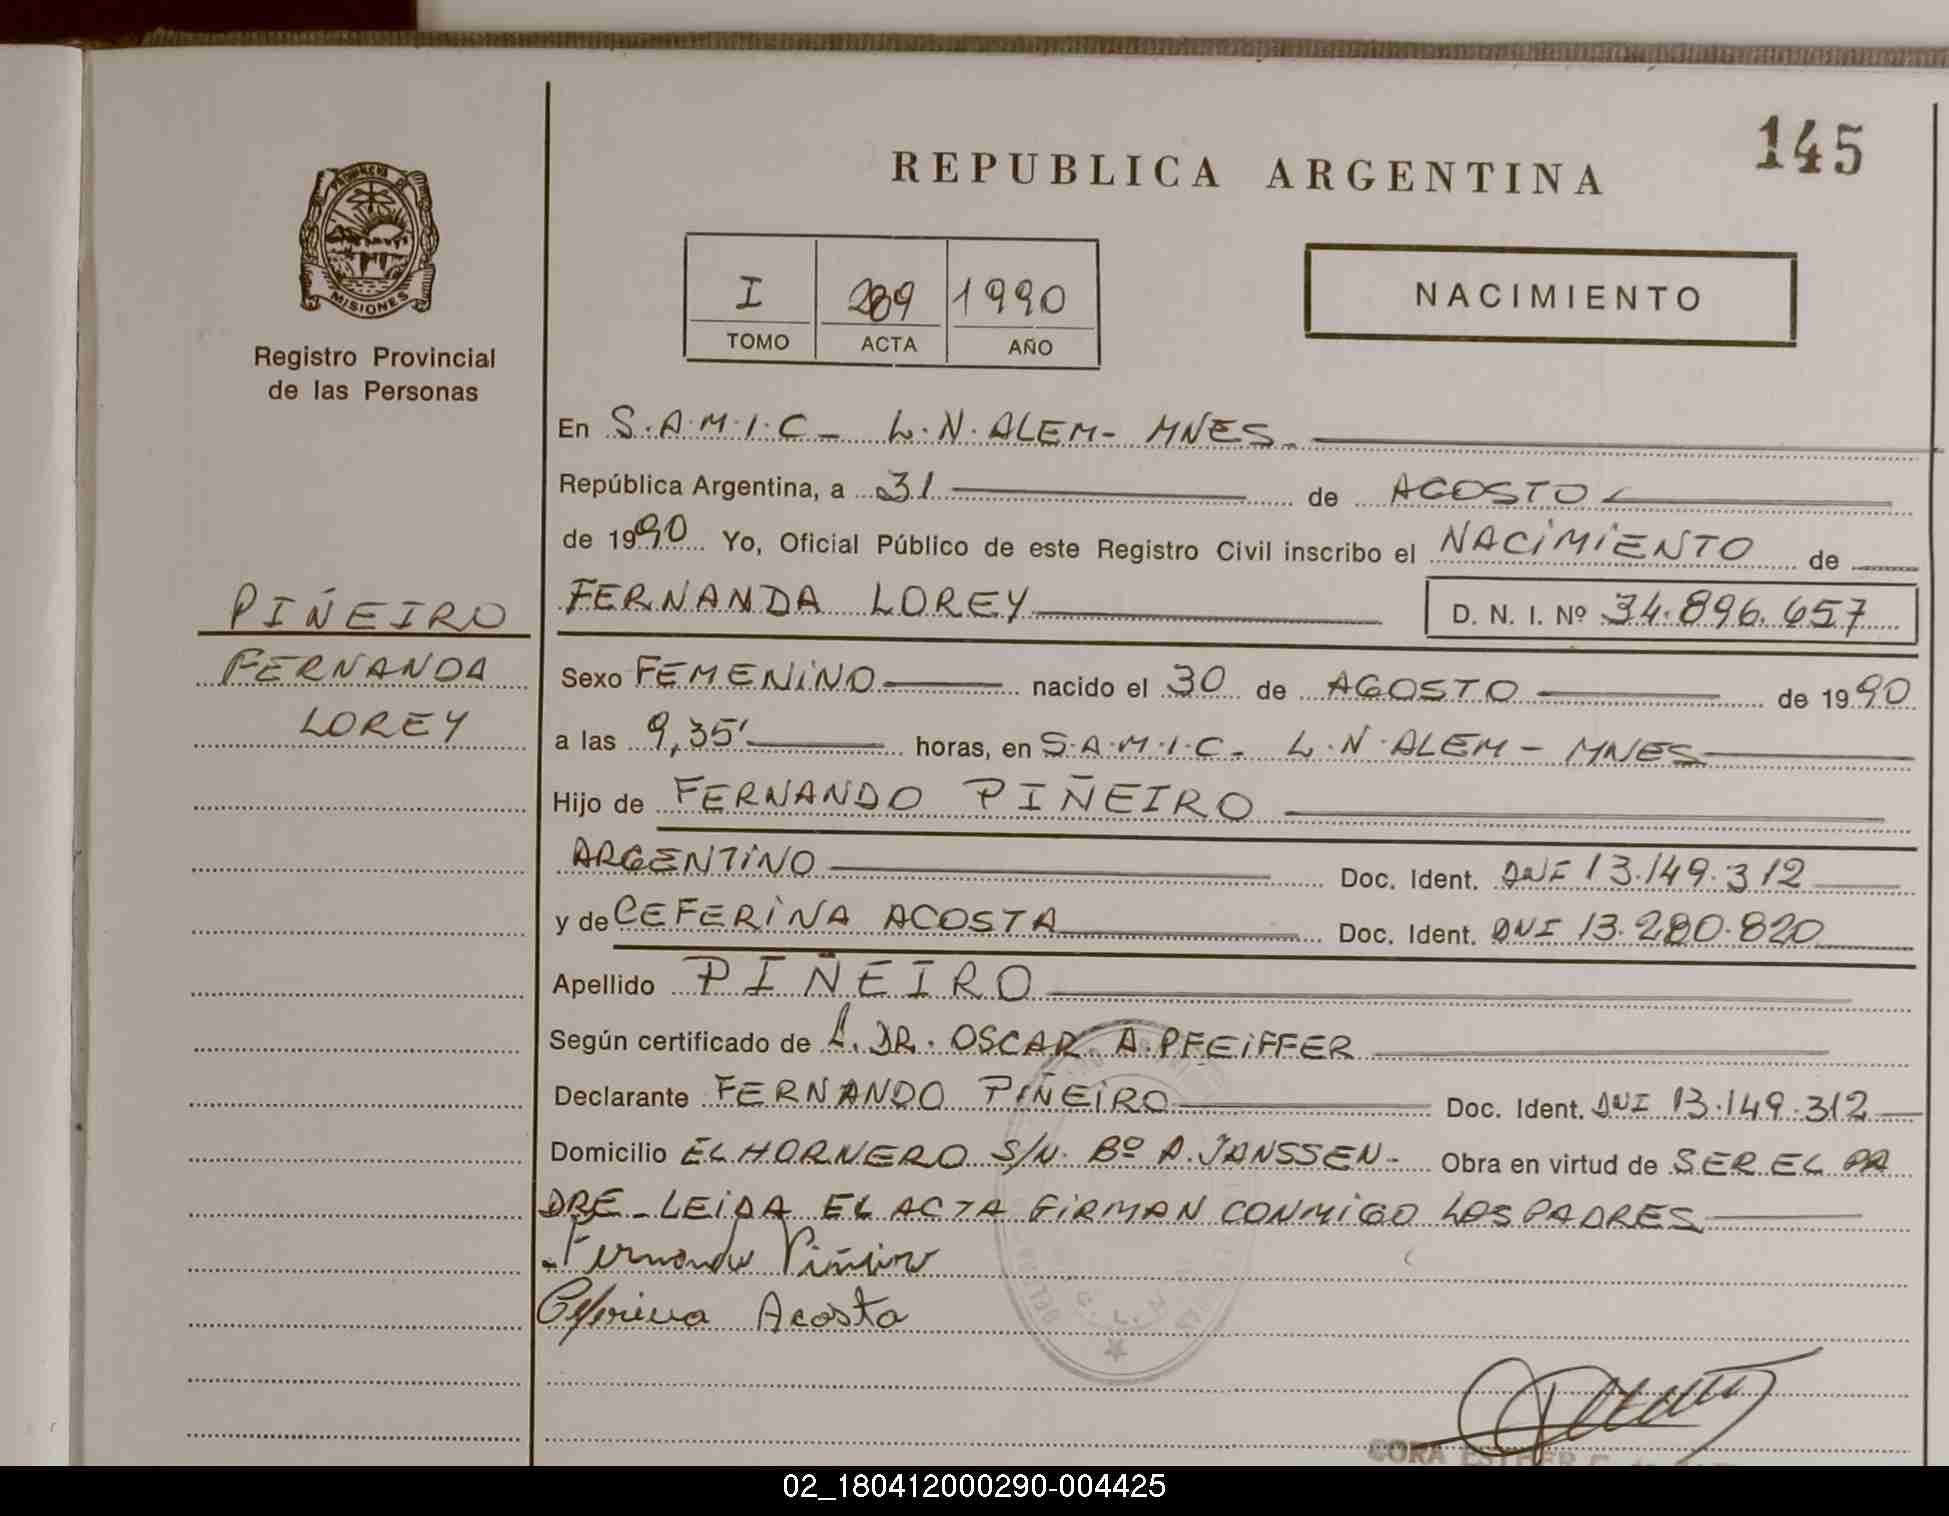 145
REPUBLICA ARGENTINA
PROVINCIA DE
MISIONES
Registro Provincial
de las Personas
I 289 1990
TOMO ACTA AÑO
NACIMIENTO
En S.A.M.I.C - L.N. ALEM - MNES.
República Argentina, a 31 de AGOSTO
de 1990 Yo, Oficial Público de este Registro Civil inscribo el NACIMIENTO de
FERNANDA LOREY D. N. I. Nº 34.896.657
PIÑEIRO
FERNANDA
LOREY
Sexo FEMENINO nacido el 30 de AGOSTO de 1990
a las 9,35' horas, en S.A.M.I.C - L.N. ALEM - MNES
Hijo de FERNANDO PIÑEIRO
ARGENTINO Doc. Ident. DNI 13.149.312
y de CEFERINA ACOSTA Doc. Ident. DNI 13.280.820
Apellido PIÑEIRO
Según certificado de L. DR. OSCAR A. PFEIFFER
Declarante FERNANDO PIÑEIRO Doc. Ident. DNI 13.149.312
Domicilio EL HORNERO S/N. Bº A. JANSSEN - Obra en virtud de SER EL PA
DRE - LEIDA EL ACTA FIRMAN CONMIGO LOS PADRES
Fernando Piñeiro
Ceferina Acosta
CORA ESTHER
02_180412000290-004425